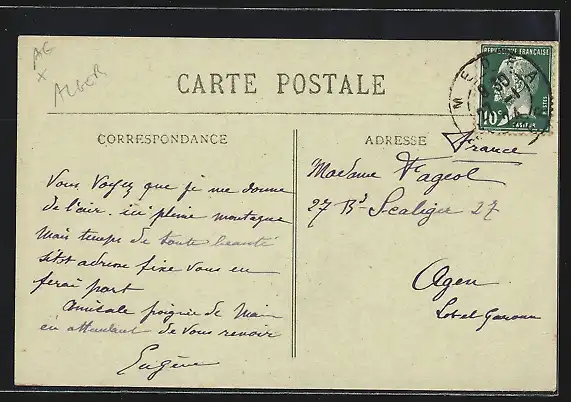 AG
x
ALGER
CARTE POSTALE
REPUBLIQUE FRANÇAISE
10c
POSTES
PASTEUR
MEDEA
CORRESPONDANCE
ADRESSE
France
Vous Voyez que je me donne
de l'air. ici pleine montagne
Mais temps de toute beauté
sitôt adresse fixe Vous en
ferai part
Amicale poignée de Main
en attendant de vous revoir
Eugène
Madame Fageol
27 Bd Scaliger 27
Agen
Lot et Garonne